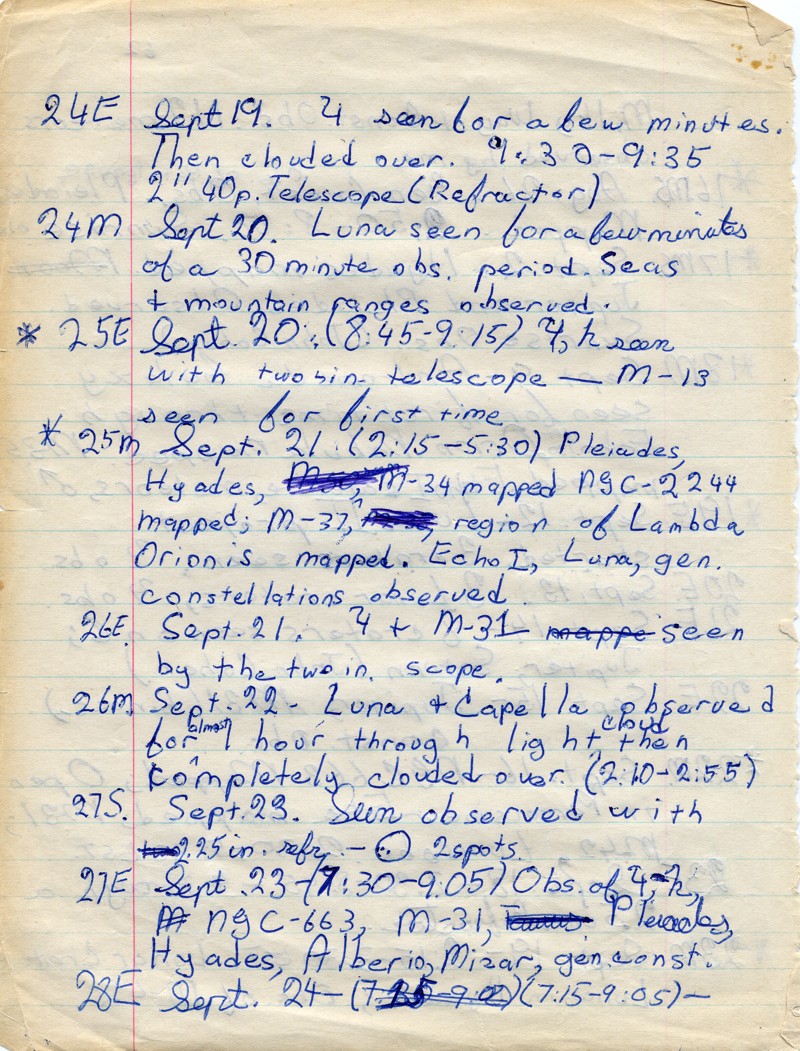 24E Sept 19. ♃ seen for a few minutes.
Then clouded over. 9:30-9:35
2" 40p. Telescope (Refractor)
24M Sept 20. Luna seen for a few minutes
of a 30 minute obs. period. Seas
+ mountain ranges observed.
* 25E Sept. 20. (8:45-9:15) ♃, ♄ seen
with two in. telescope — M-13
seen for first time
* 25M Sept. 21. (2:15-5:30) Pleiades,
Hyades, M-34 mapped NGC-2244
mapped; M-37, region of Lambda
Orionis mapped. Echo I, Luna, gen.
constellations observed.
26E. Sept. 21. ♃ + M-31 mappe seen
by the two in. scope.
26M. Sept. 22 - Luna + Capella observed
for almost 1 hour through light cloud, then
completely clouded over. (2:10-2:55)
27S. Sept. 23. Sun observed with
two 2.25 in. refr. - 2 spots.
27E Sept. 23-(7:30-9:05) Obs. of ♃, ♄,
M NGC-663, M-31, Taurus Pleiades,
Hyades, Alberio, Mizar, gen. const.
28E Sept. 24-(7:15-9:02) (7:15-9:05)-